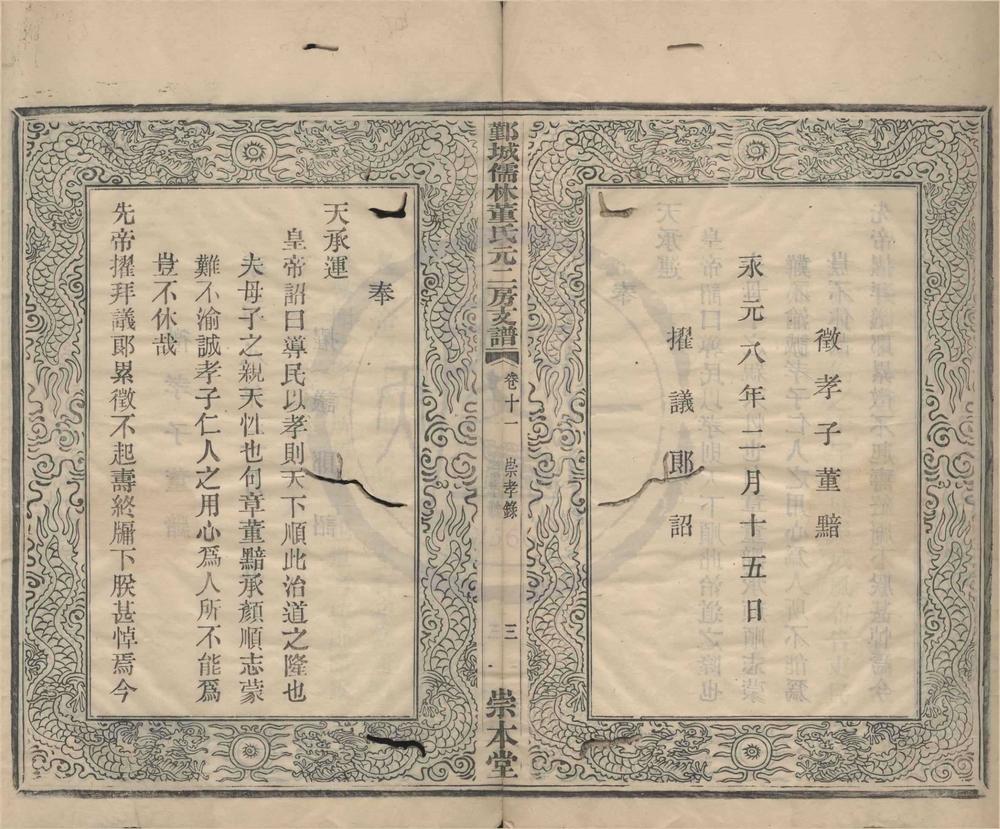 徵孝子董黯
永元八年二月十五日
擢議郎詔
鄞城儒林董氏元二房支譜
卷十一
崇孝錄
三
崇本堂
奉
天承運
皇帝詔曰導民以孝則天下順此治道之隆也
夫母子之親天性也句章董黯承顏順志蒙
難不渝誠孝子仁人之用心爲人所不能爲
豈不休哉
先帝擢拜議郎累徵不起壽終牖下朕甚悼焉今